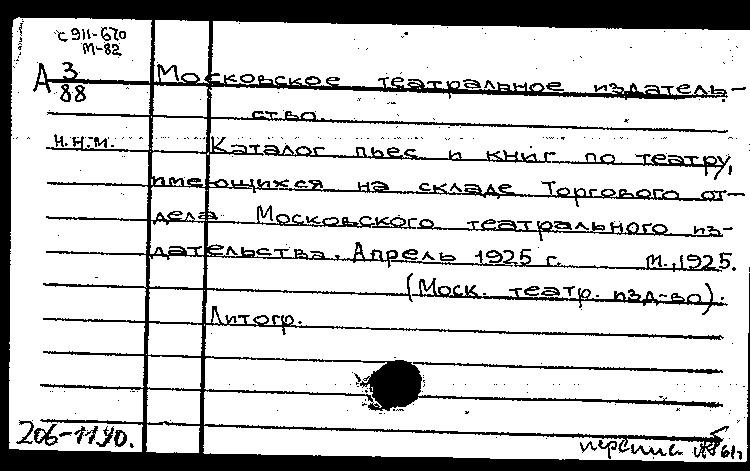 с 911-670
М-82
А 3/88
Московское театральное издатель-
ство.
н.н.м. Каталог пьес и книг по театру,
имеющихся на складе Торгового от-
дела Московского театрального из-
дательства. Апрель 1925 г. М., 1925.
(Моск. театр. изд-во).
Литогр.
206-1140.